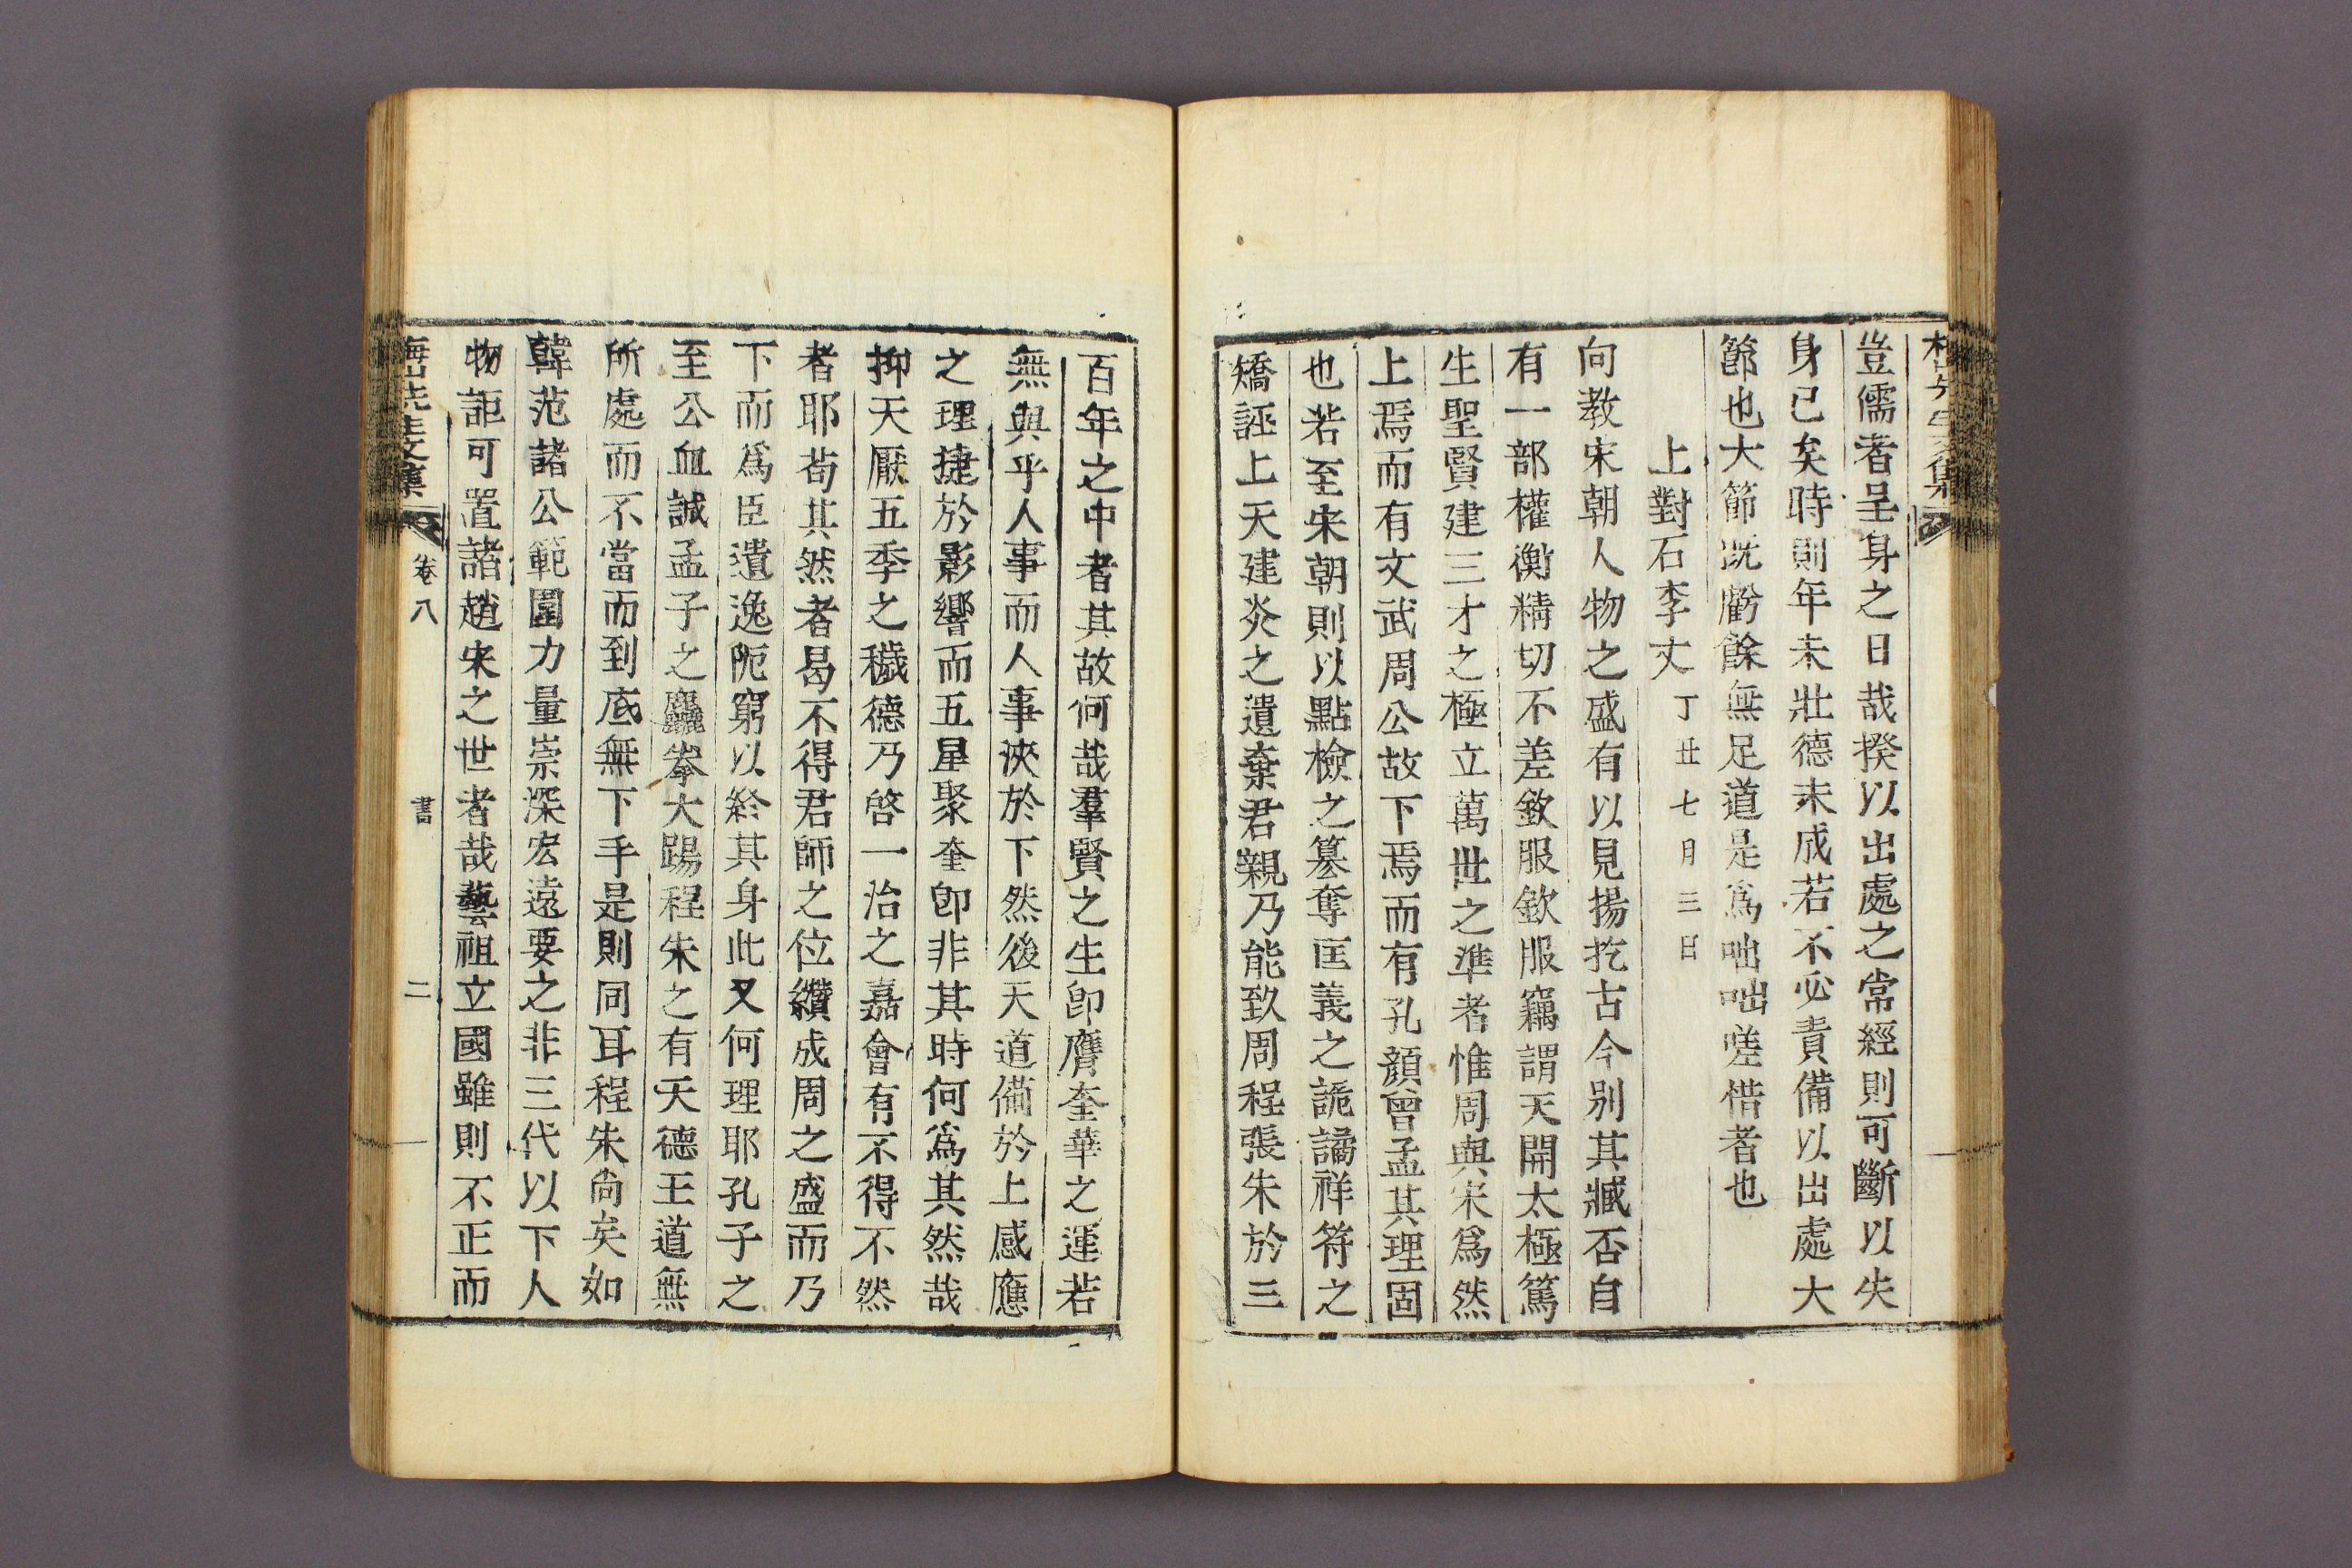 豈儒者呈身之日哉揆以出處之常經則可斷以失
身已矣時則年未壯德未成若不必責備以出處大
節也大節旣虧餘無足道是爲咄咄嗟惜者也
上對石李丈 丁丑七月三日
向教宋朝人物之盛有以見揚扢古今別其臧否自
有一部權衡精切不差欽服欽服竊謂天開太極篤
生聖賢建三才之極立萬世之準者惟周與宋爲然
上焉而有文武周公故下焉而有孔顏曾孟其理固
也若至宋朝則以點檢之簒奪匡義之詭譎祥符之
矯誣上天建炎之遺棄君親乃能致周程張朱於三
百年之中者其故何哉羣賢之生卽膺奎華之運若
無與乎人事而人事浹於下然後天道備於上感應
之理捷於影響而五星聚奎卽非其時何爲其然哉
抑天厭五季之穢德乃啓一治之嘉會有不得不然
者耶苟其然者曷不得君師之位纘成周之盛而乃
下而爲臣遺逸阨窮以終其身此又何理耶孔子之
至公血誠孟子之麤拳大踢程朱之有天德王道無
所處而不當而到底無下手是則同耳程朱尙矣如
韓范諸公範圍力量崇深宏遠要之非三代以下人
物詎可置諸趙宋之世者哉藝祖立國雖則不正而
梅山先生文集 卷八 書 二